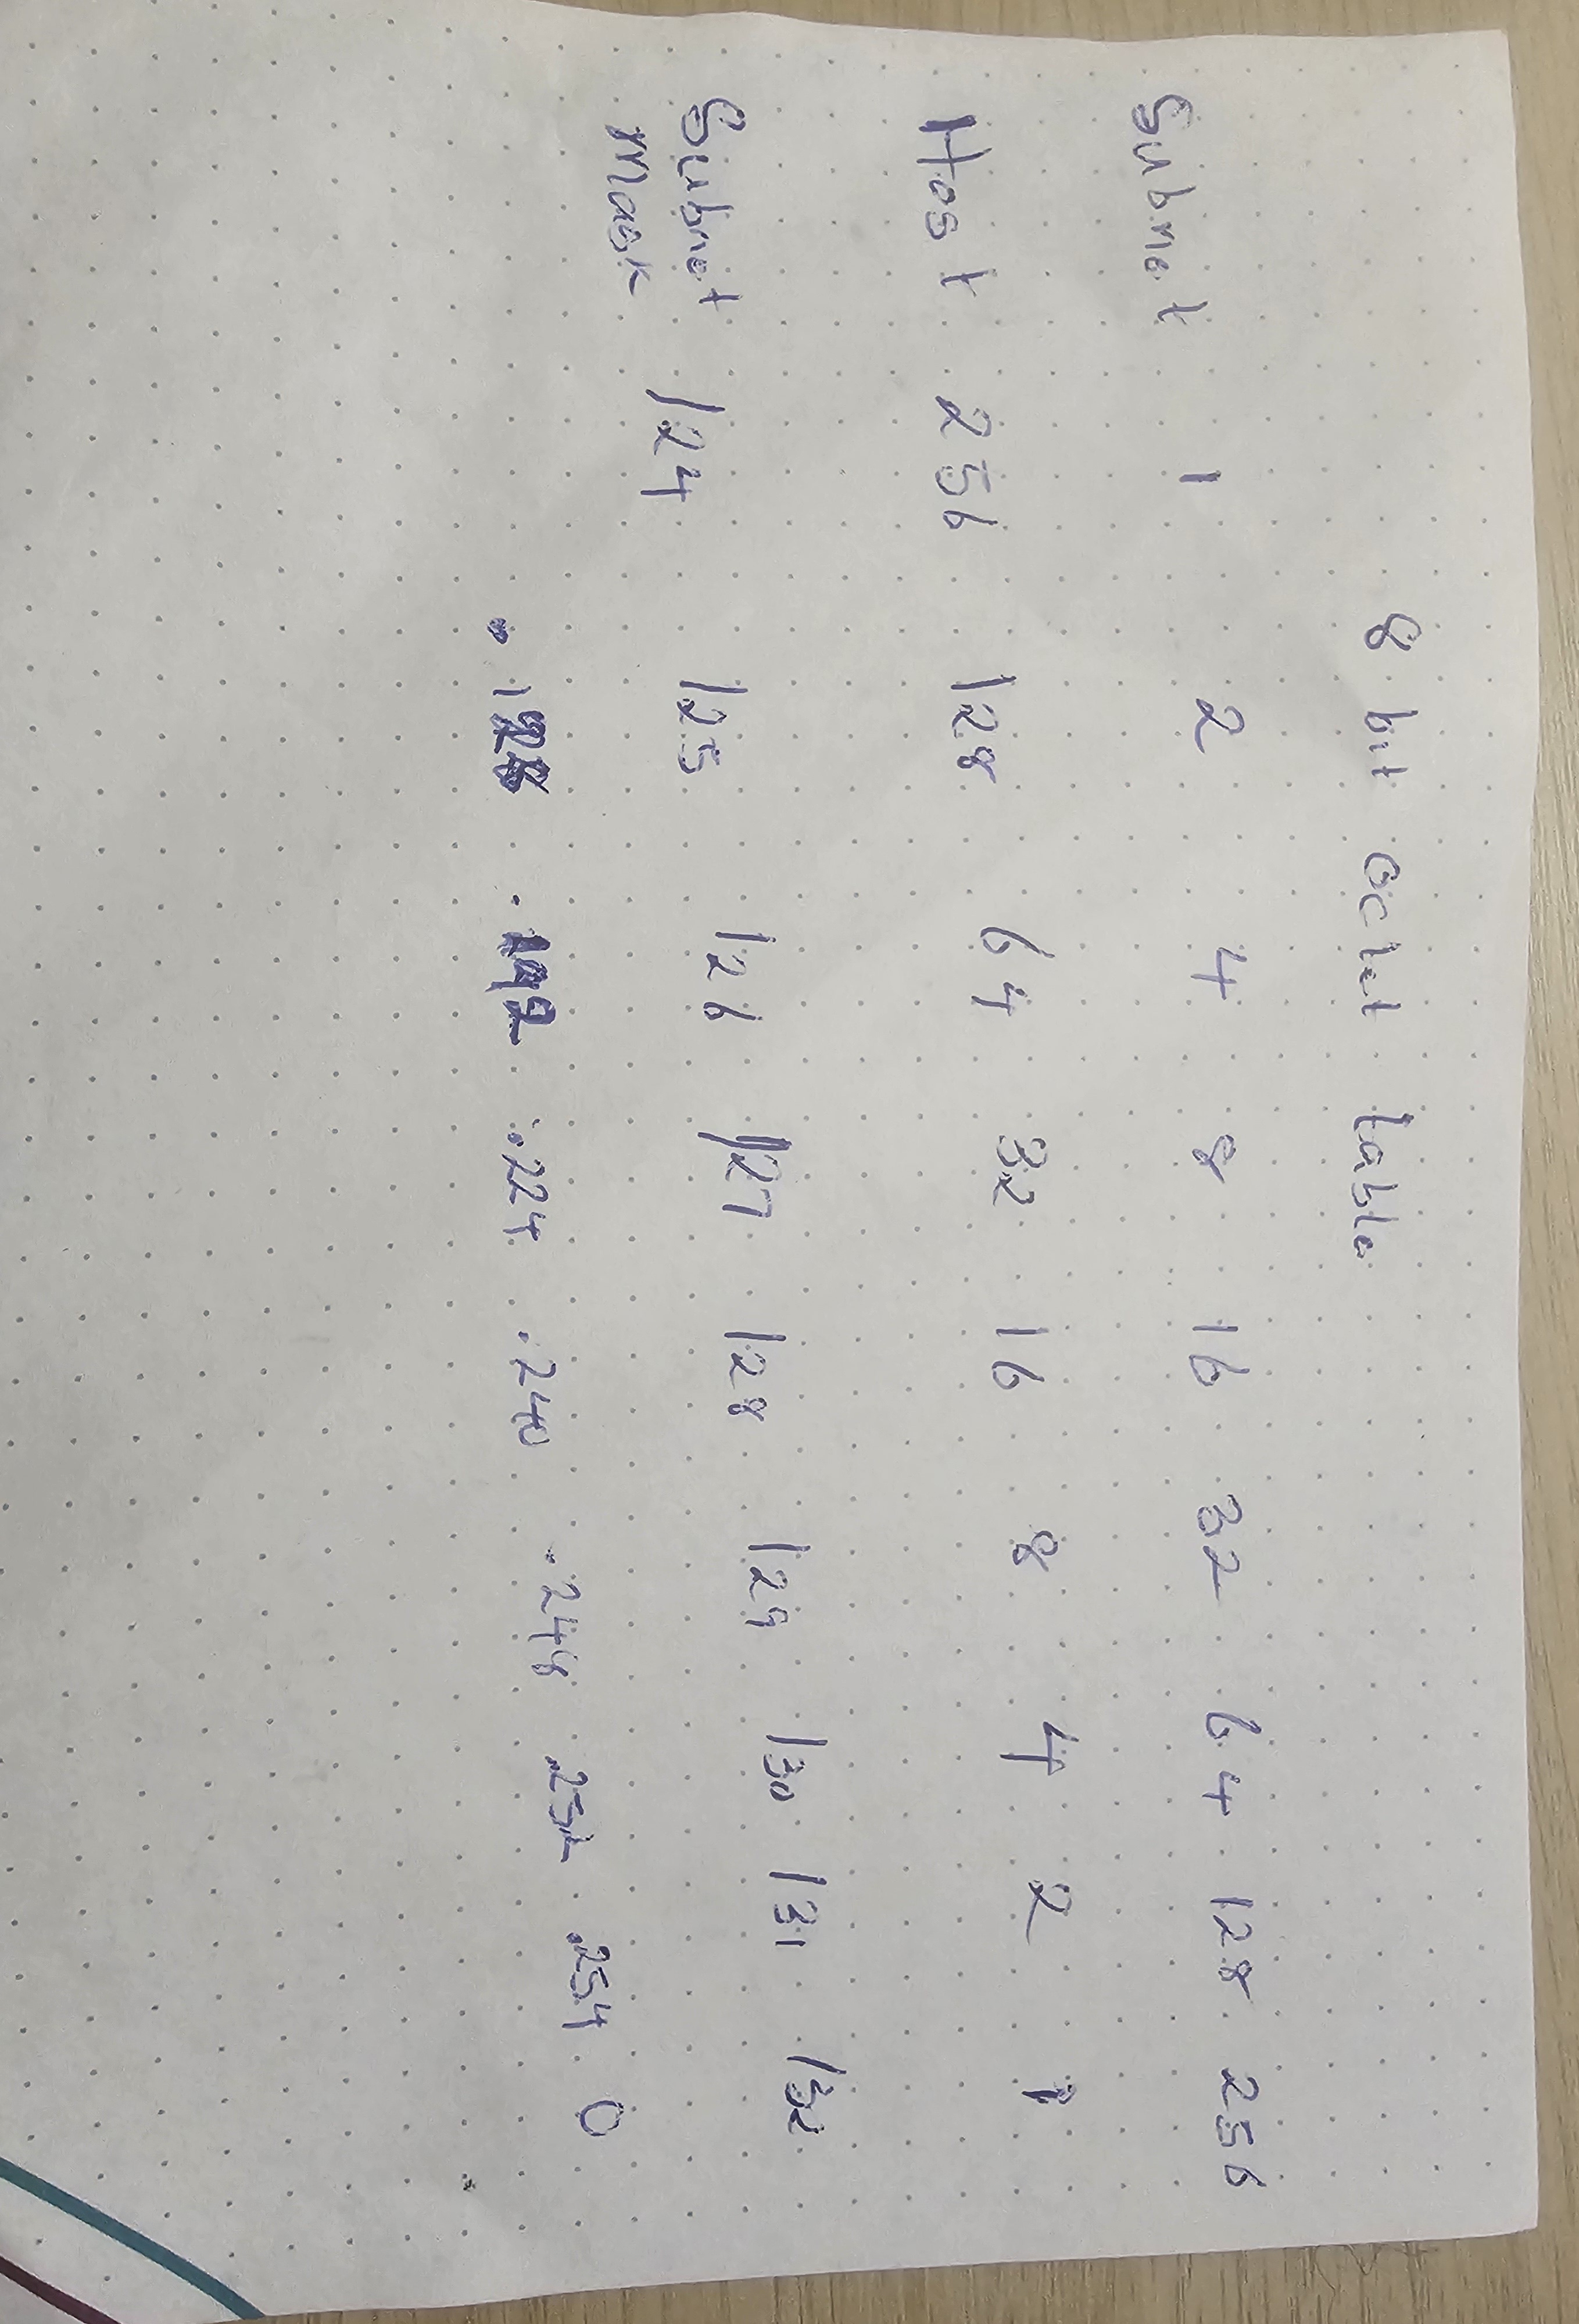 8 bit octet table
Subnet 1 2 4 8 16 32 64 128 256
Host 256 128 64 32 16 8 4 2 1
Subnet /24 /25 /26 /27 /28 /29 /30 /31 /32
Mask
.128 .192 .224 .240 .248 .252 .254 0